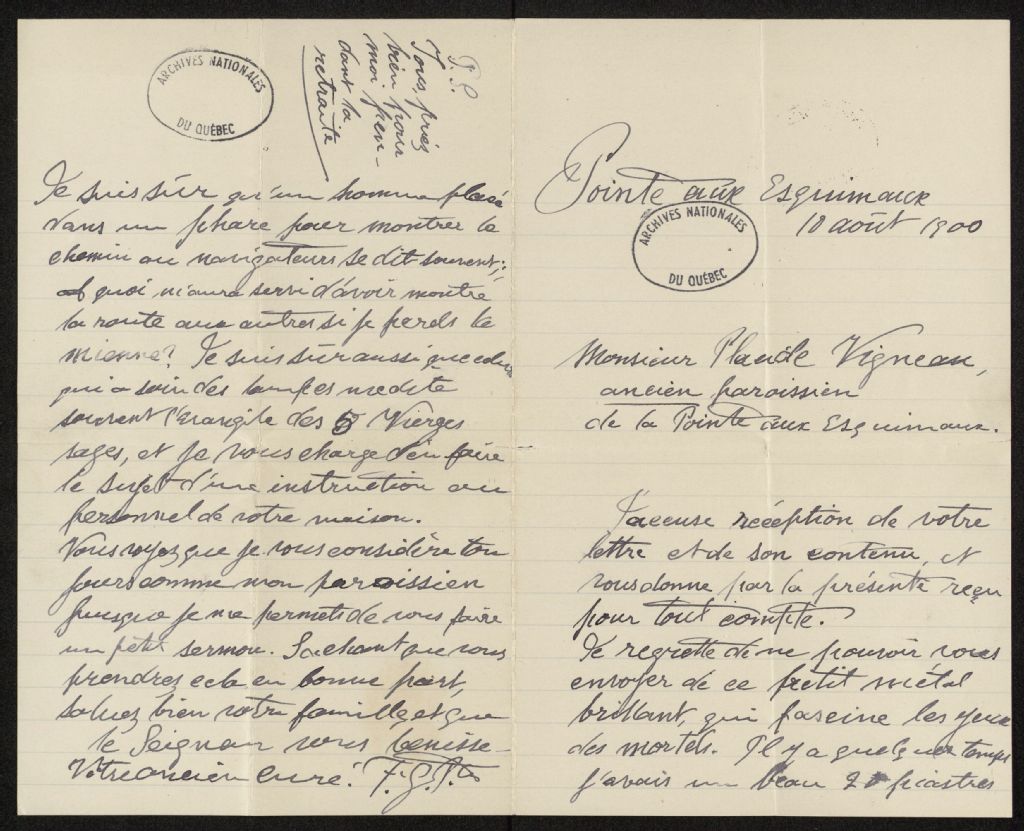 Pointe aux Esquimaux
10 août 1900
ARCHIVES NATIONALES
DU QUÉBEC
Monsieur Placide Vigneau,
ancien paroissien
de la Pointe aux Esquimaux.
J'accuse réception de votre
lettre et de son contenu, et
vous donne par la présente reçu
pour tout compte.
Je regrette de ne pouvoir vous
envoyer de ce petit métal
brillant, qui fascine les yeux
des mortels. Il y a quelques temps
j'avais un beau piastres
ARCHIVES NATIONALES
DU QUÉBEC
Je suis sûr qu'un homme placé
dans un phare pour montrer le
chemin au navigateurs se dit souvent;
A quoi m'aura servi d'avoir montré
la route aux autres si je perds la
mienne? Je suis sûr aussi que celui
qui a soin des lampes médite
souvent l'évangile des 5 Vierges
sages, et je vous charge d'en faire
le sujet d'une instruction au
personnel de votre maison.
Vous voyez que je vous considère tou
jours comme mon paroissien
puisque je me permets de vous faire
un petit sermon. Sachant que vous
prendrez cela en bonne part,
saluez bien votre famille et que
le Seigneur vous bénisse.
Votre ancien curé.
P.S.
Vous priez
bien pour
moi pen-
dant la
retraite